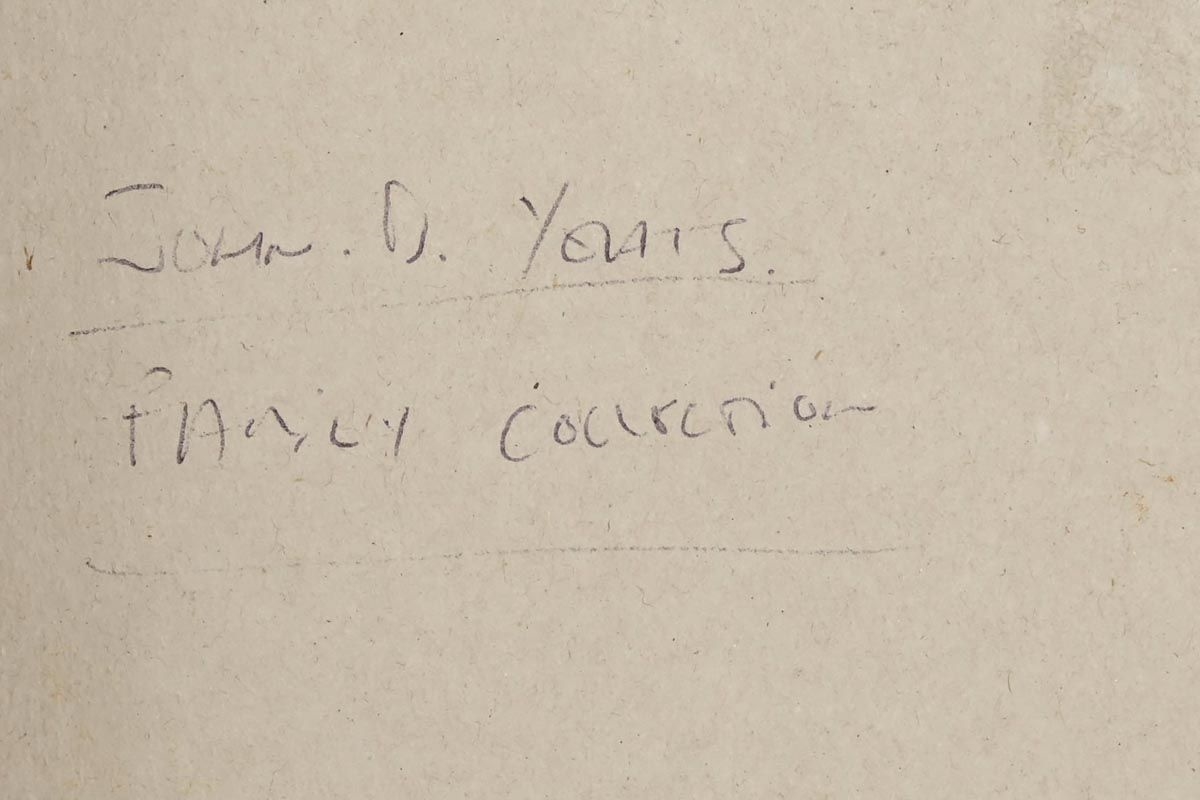 JOHN. D. YEATS.
FAMILY COLLECTION